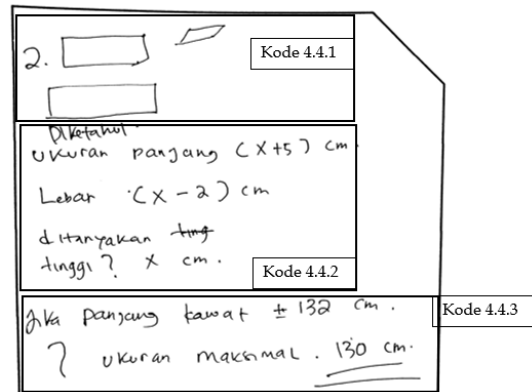 2.
Kode 4.4.1
Diketahui.
ukuran panjang (x+5) cm.
Lebar (x-2) cm
ditanyakan ting
tinggi? x cm.
Kode 4.4.2
Jika panjang kawat ± 132 cm.
Kode 4.4.3
? ukuran maksimal. 130 cm.